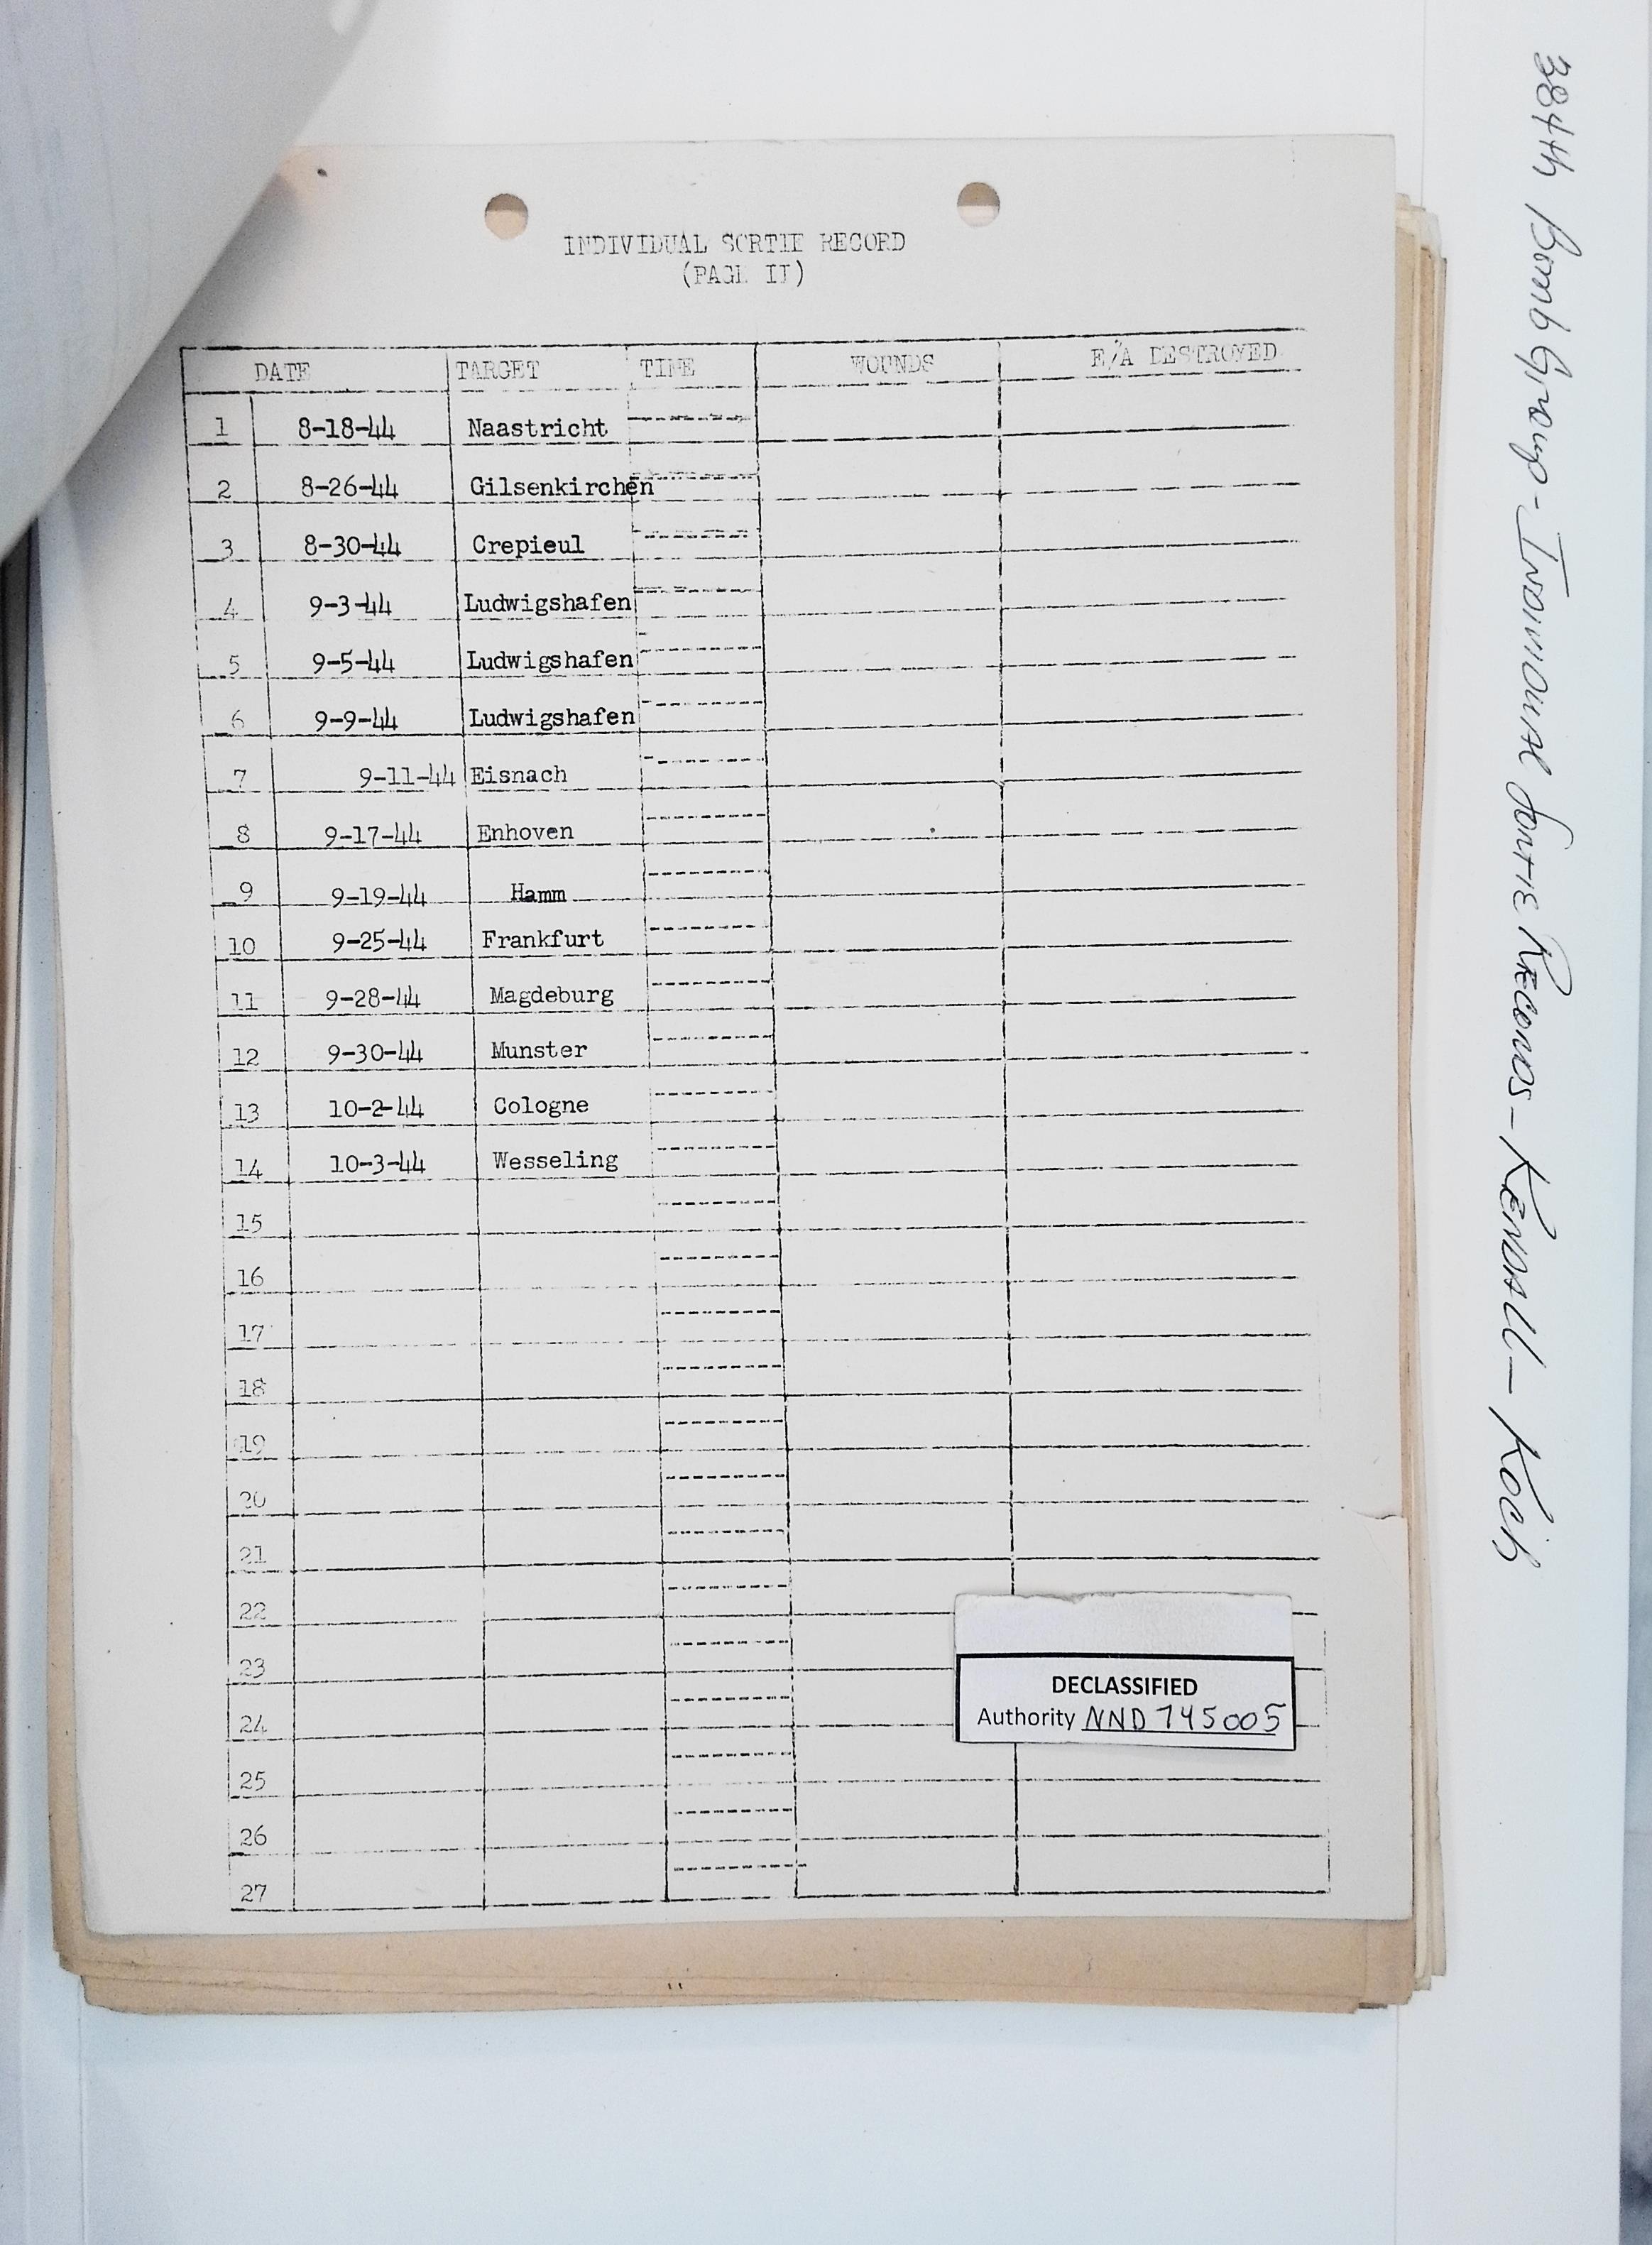 INDIVIDUAL SORTIE RECORD
(PAGE II)
DATE TARGET TIME WOUNDS E/A DESTROYED
1 8-18-44 Naastricht
2 8-26-44 Gilsenkirchen
3 8-30-44 Crepieul
4 9-3-44 Ludwigshafen
5 9-5-44 Ludwigshafen
6 9-9-44 Ludwigshafen
7 9-11-44 Eisnach
8 9-17-44 Enhoven
9 9-19-44 Hamm
10 9-25-44 Frankfurt
11 9-28-44 Magdeburg
12 9-30-44 Munster
13 10-2-44 Cologne
14 10-3-44 Wesseling
15
16
17
18
19
20
21
22
23
24
25
26
27
DECLASSIFIED
Authority NND 745005
384th Bomb Group - Individual Sortie Records - Kendall - Koch